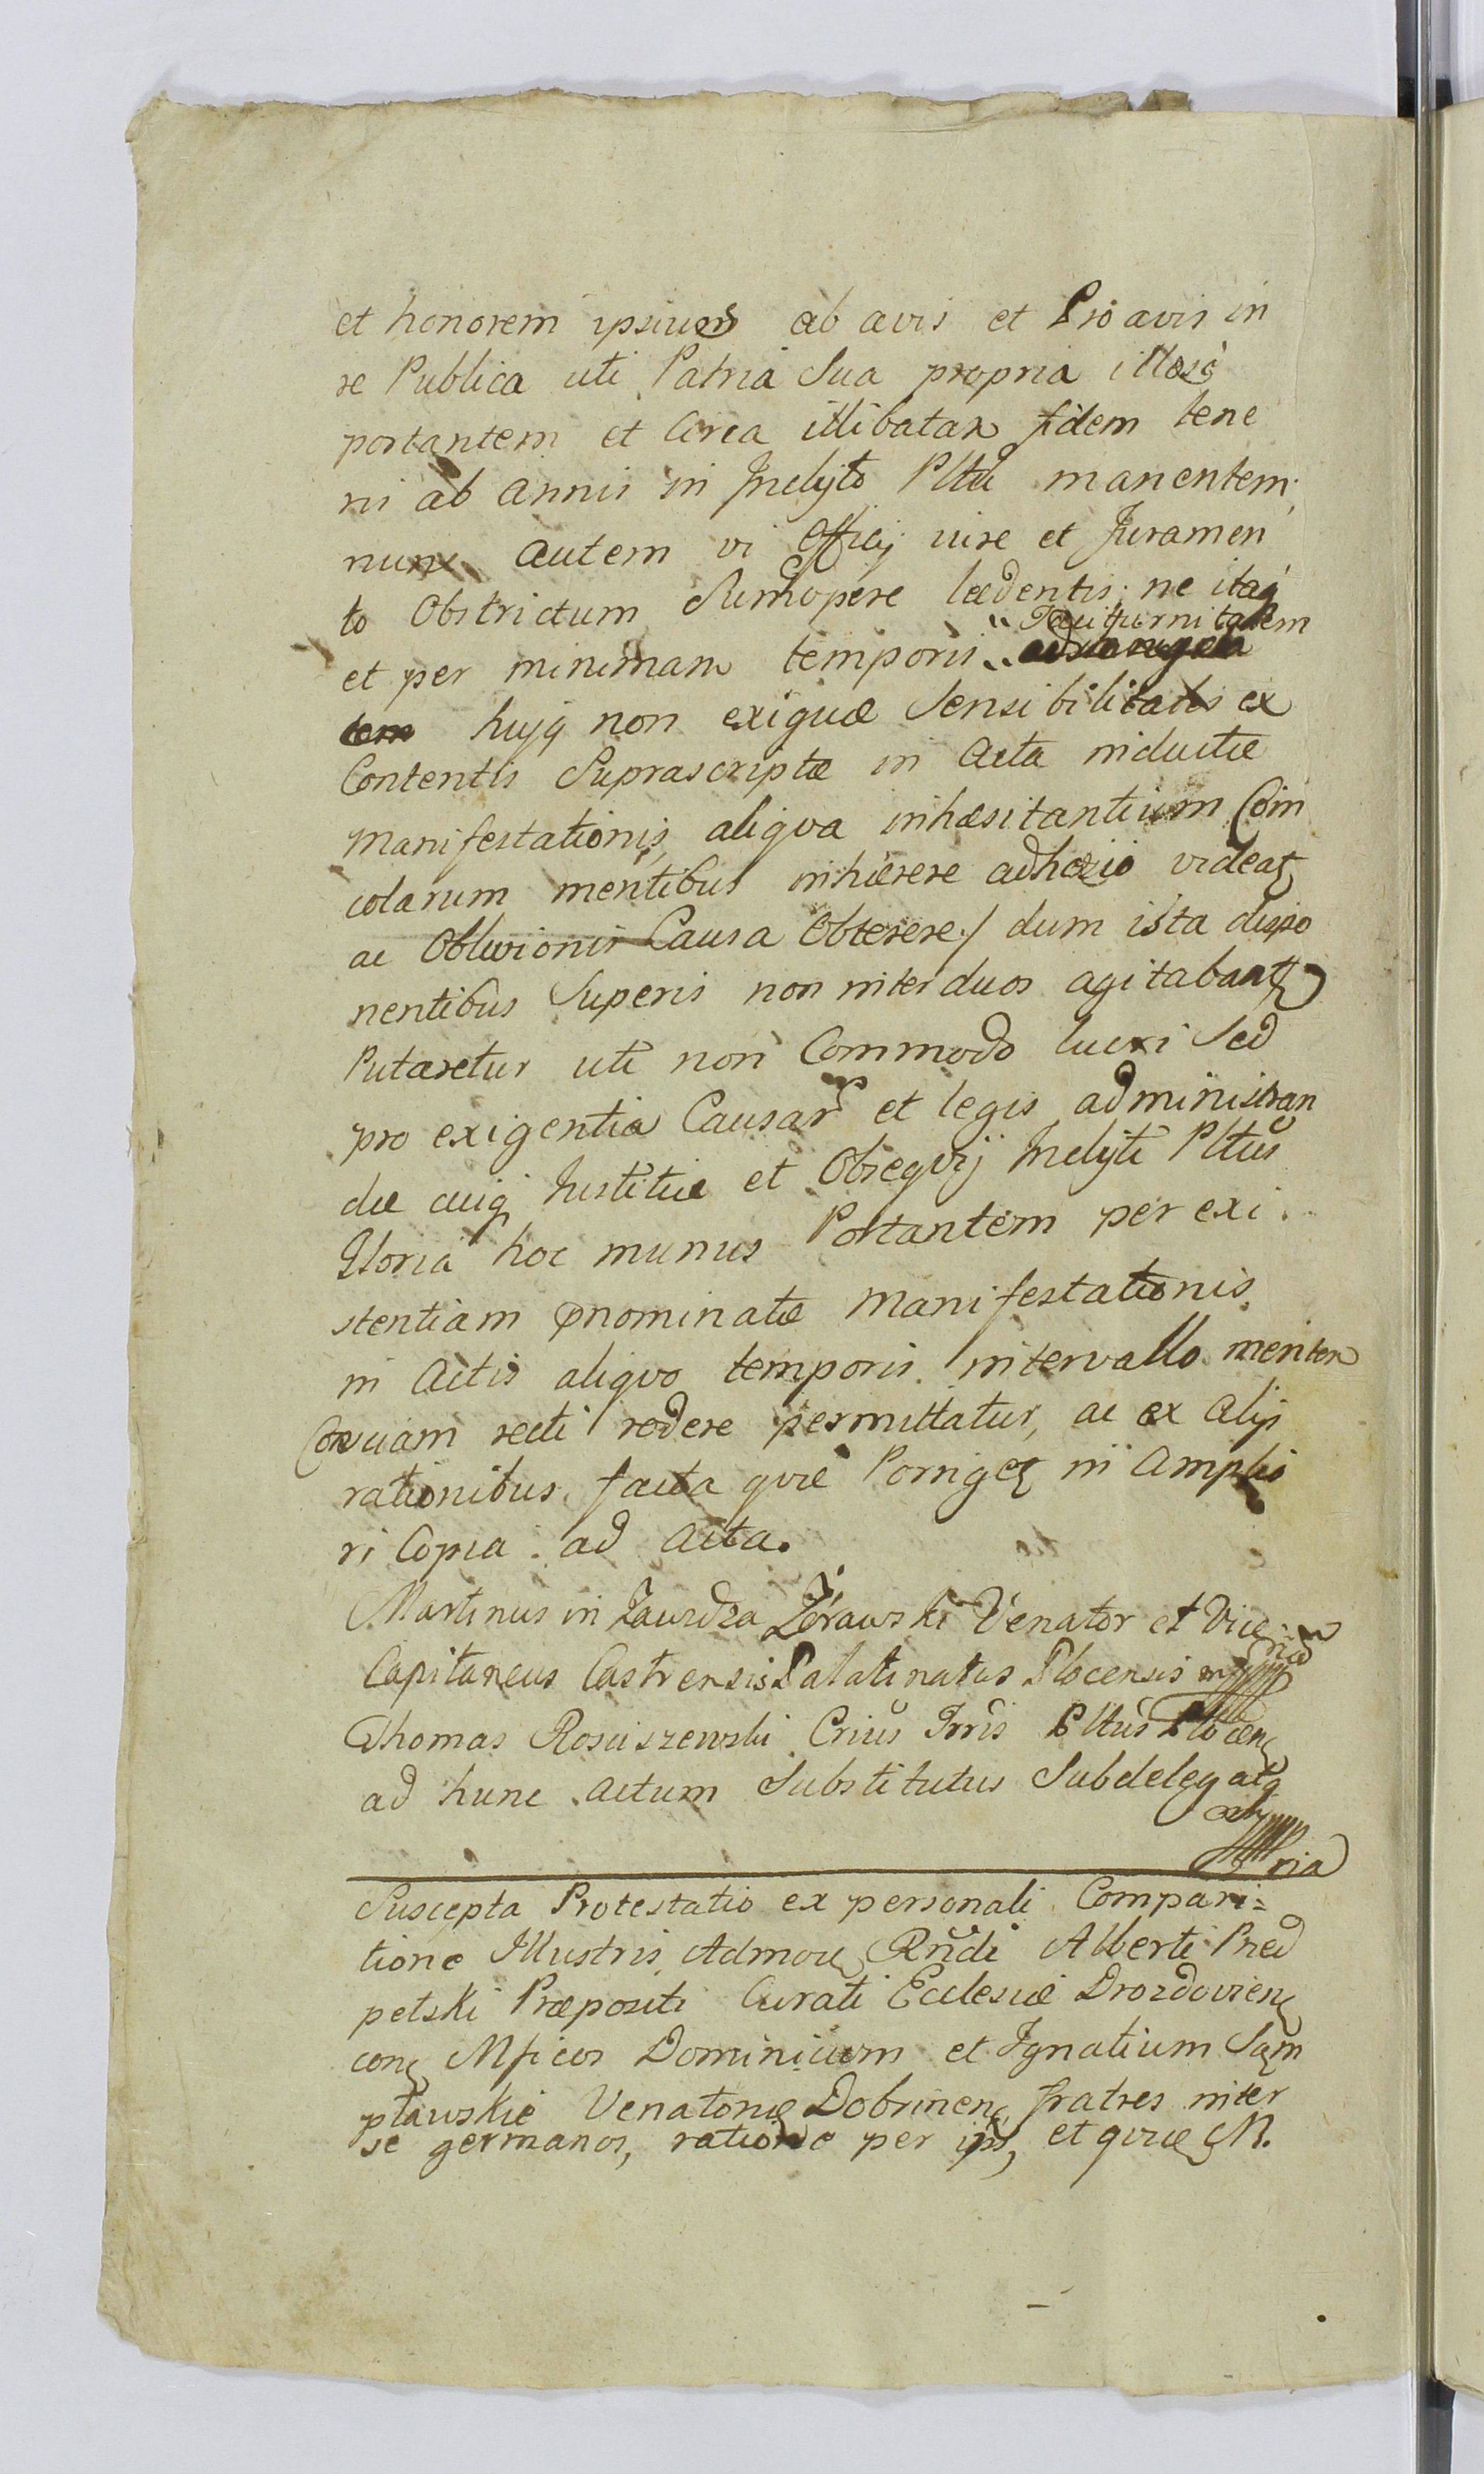 et honorem ipsius ab avis et Pro avis in
re Publica uti Patria Sua propria illæse
portantem et Circa illibatam fidem tene
ri ab annis in Inclyto Pltu manentem,
nunc autem vi Officij iure et Juramen
to Obstrictum Sum̃opere lædentis; ne itaq
„ Taciturnitatem
et per minimam temporis „
hujq non exiguæ Sensibilitatis ex
Contentis Suprascriptæ in Acta inductæ
Manifestationis, aliqva inhæsitantium Coin
colarum mentibus inhærere adhezio videatr
ac Oblivionis Causa Obterere / dum ista dispo
nentibus Superis non inter duos agitabantr
Putaretur uti non Commodo lucri Sed
pro exigentia Causar et legis administran
dæ cuiq Justitiæ et Obseqvij Inclyti Pltus
Gloria hoc munus Portantem per exi
stentiam prnominatæ Manifestationis
in Actis aliqvo temporis intervallo mentem
Consciam recti rodere permittatur, ac ex Alijs
rationibus facta qvæ Porriget in Amplio
ri Copia ad Acta.
Martinus in Zawdza Żórawski Venator et Vice
Capitaneus Castrensis Palatinatus Plocensis mppria
Thomas Rosciszewski Crius Trris Pltus Plocen
ad hunc actum Substitutus Subdelegatq
mppria
Suscepta Protestatio ex personali Compari=
tione Illustris Admou Rndi Alberti Pred
petski Præpositi Curati Ecclesiæ Drozdovien
con Mficos Dominicum et Ignatium Sam
pławskie Venatori Dobrinen fratres inter
se germanos, ratione per ips, et qvia M.